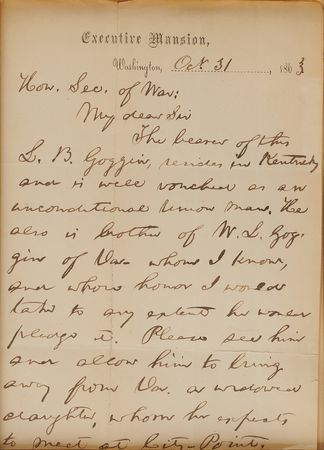 Executive Mansion,
Washington, Oct 31, 1863
Hon. Sec. of War:
My dear Sir
The bearer of this
L. B. Goggin, resides in Kentucky
and is well vouched as an
unconditional Union man. He
also is brother of W. L. Gog-
gin of Va. whom I know,
and whose honor I would
take to any extent he would
pledge it. Please see him
and allow him to bring
away from Va. a widowed
daughter, whom he expects
to meet at City-Point.